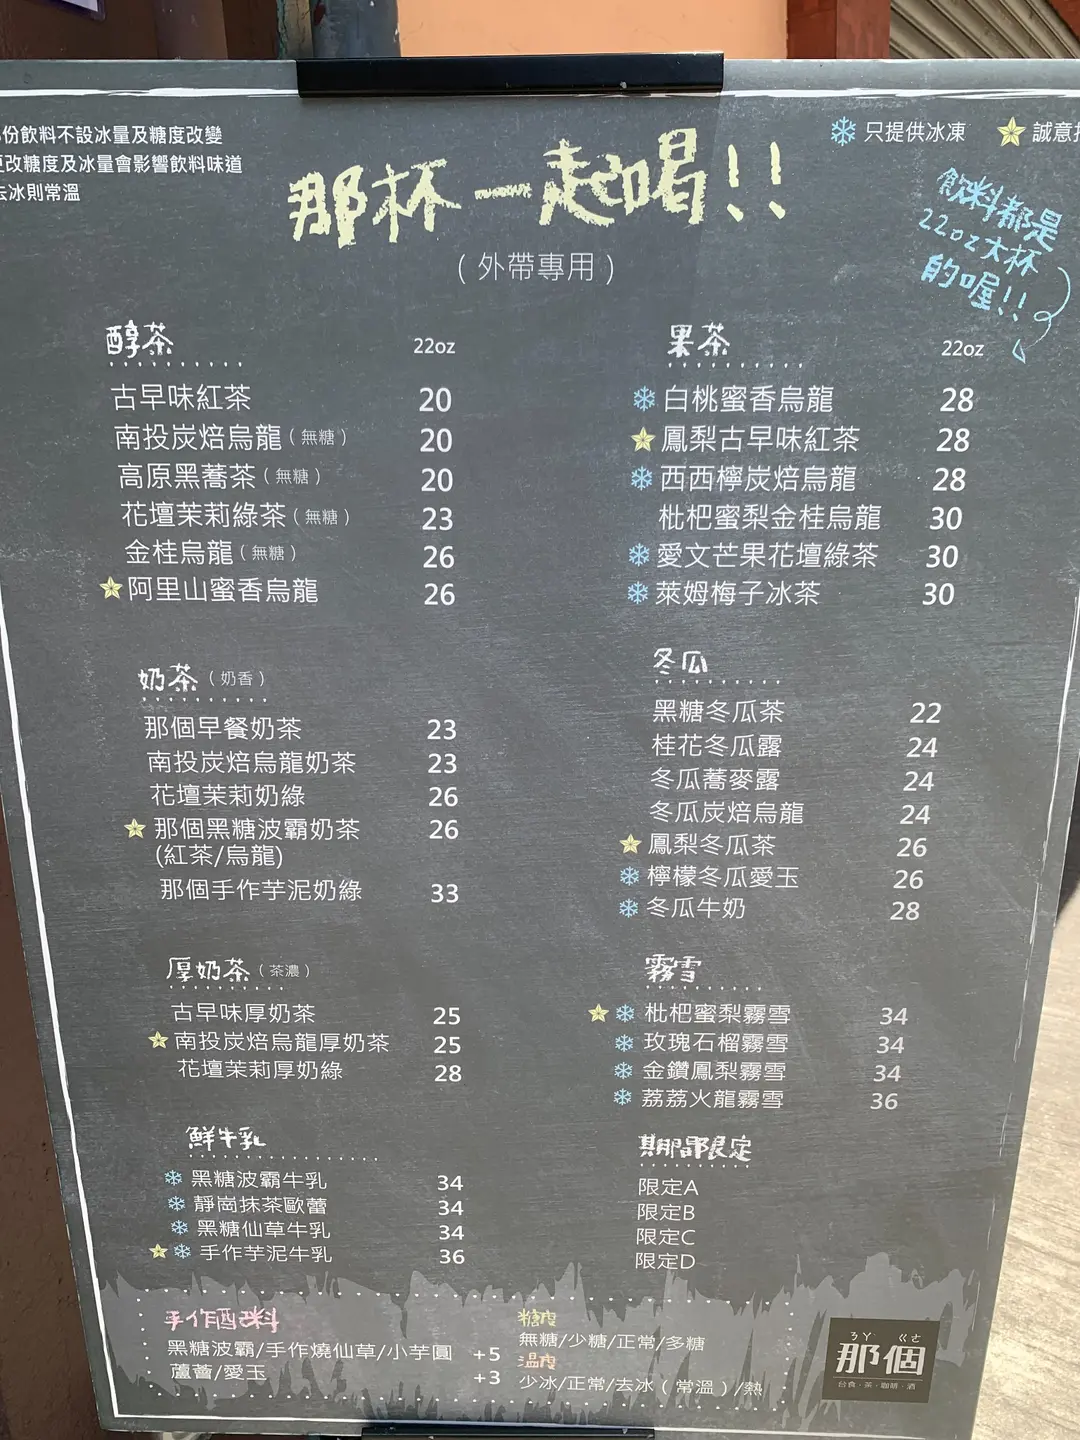 份飲料不設冰量及糖度改變
改糖度及冰量會影響飲料味道
去冰則常溫
只提供冰凍
誠意
那杯一起喝!!
(外帶專用)
飲料都是
22oz大杯
的喔!!
醇茶 22oz
古早味紅茶 20
南投炭焙烏龍(無糖) 20
高原黑蕎茶(無糖) 20
花壇茉莉綠茶(無糖) 23
金桂烏龍(無糖) 26
阿里山蜜香烏龍 26
奶茶(奶香)
那個早餐奶茶 23
南投炭焙烏龍奶茶 23
花壇茉莉奶綠 26
那個黑糖波霸奶茶 26
(紅茶/烏龍)
那個手作芋泥奶綠 33
厚奶茶(茶濃)
古早味厚奶茶 25
南投炭焙烏龍厚奶茶 25
花壇茉莉厚奶綠 28
鮮牛乳
黑糖波霸牛乳 34
靜崗抹茶歐蕾 34
黑糖仙草牛乳 34
手作芋泥牛乳 36
果茶 22oz
白桃蜜香烏龍 28
鳳梨古早味紅茶 28
西西檸炭焙烏龍 28
枇杷蜜梨金桂烏龍 30
愛文芒果花壇綠茶 30
萊姆梅子冰茶 30
冬瓜
黑糖冬瓜茶 22
桂花冬瓜露 24
冬瓜蕎麥露 24
冬瓜炭焙烏龍 24
鳳梨冬瓜茶 26
檸檬冬瓜愛玉 26
冬瓜牛奶 28
霧雪
枇杷蜜梨霧雪 34
玫瑰石榴霧雪 34
金鑽鳳梨霧雪 34
荔荔火龍霧雪 36
期間限定
限定A
限定B
限定C
限定D
手作配料
黑糖波霸/手作燒仙草/小芋圓 +5
蘆薈/愛玉 +3
糖度
無糖/少糖/正常/多糖
溫度
少冰/正常/去冰(常溫)/熱
ㄋㄚ ㄍㄜ
那個
台食·茶·咖啡·酒